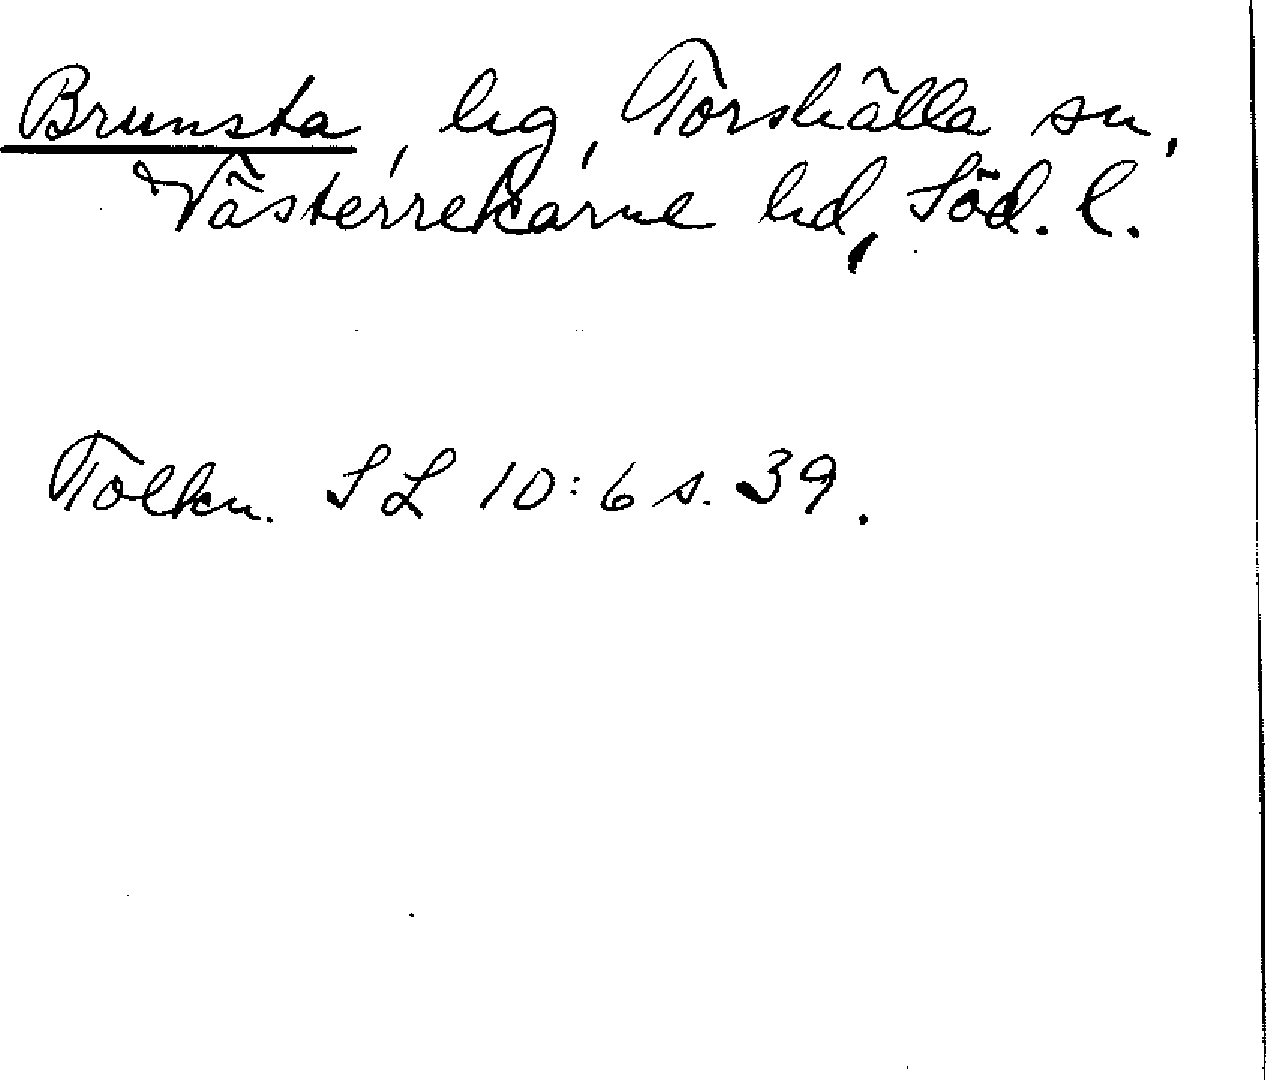 Brunsta, hg, Torshälla sn,
Västerrekarne hd, Söd. l.
Tolkn. SL 10:6 s. 39.